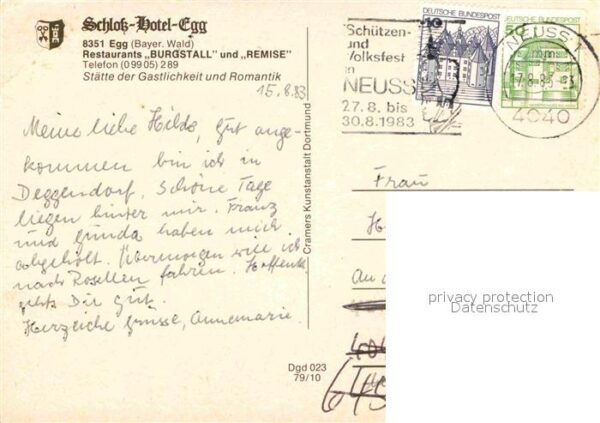 Schloß-Hotel-Egg
8351 Egg (Bayer. Wald)
Restaurants „BURGSTALL" und „REMISE"
Telefon (09905) 289
Stätte der Gastlichkeit und Romantik
15.8.83
Meine liebe Hilde, Gut ange-
kommen bin ich in
Deggendorf. Schöne Tage
liegen hinter mir. Franz
und Gunda haben mich
abgeholt. Übermorgen will ich
nach Rosellen fahren. Hoffentl.
geht's Dir gut.
Herzliche Grüsse, Annemarie.
Cramers Kunstanstalt Dortmund
Dgd 023
79/10
Schützen-
und
Volksfest
in
NEUSS
27.8. bis
30.8.1983
DEUTSCHE BUNDESPOST
10
DEUTSCHE BUNDESPOST
50
NEUSS 1
17.8.83
4040
Frau
H
An
privacy protection
Datenschutz